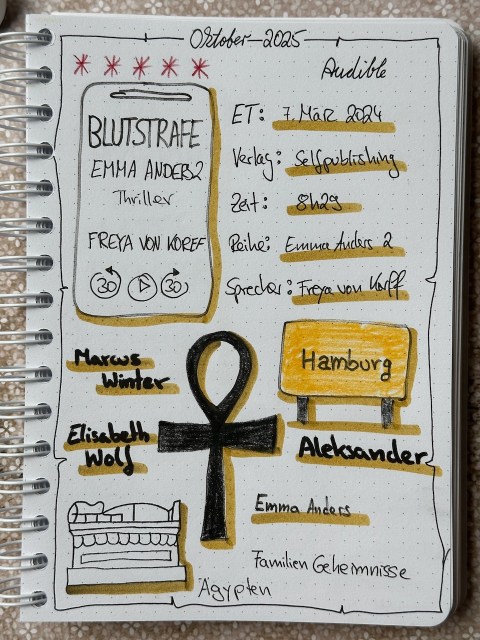 Oktober 2025
Audible
BLUTSTRAFE
EMMA ANDERS 2
Thriller
FREYA VON KORFF
30
30
ET: 7. März 2024
Verlag: Selfpublishing
Zeit: 8h29
Reihe: Emma Anders 2
Sprecher: Freya von Korff
Marcus
Winter
Hamburg
Elisabeth
Wolf
Aleksander
Emma Anders
Familien Geheimnisse
Ägypten